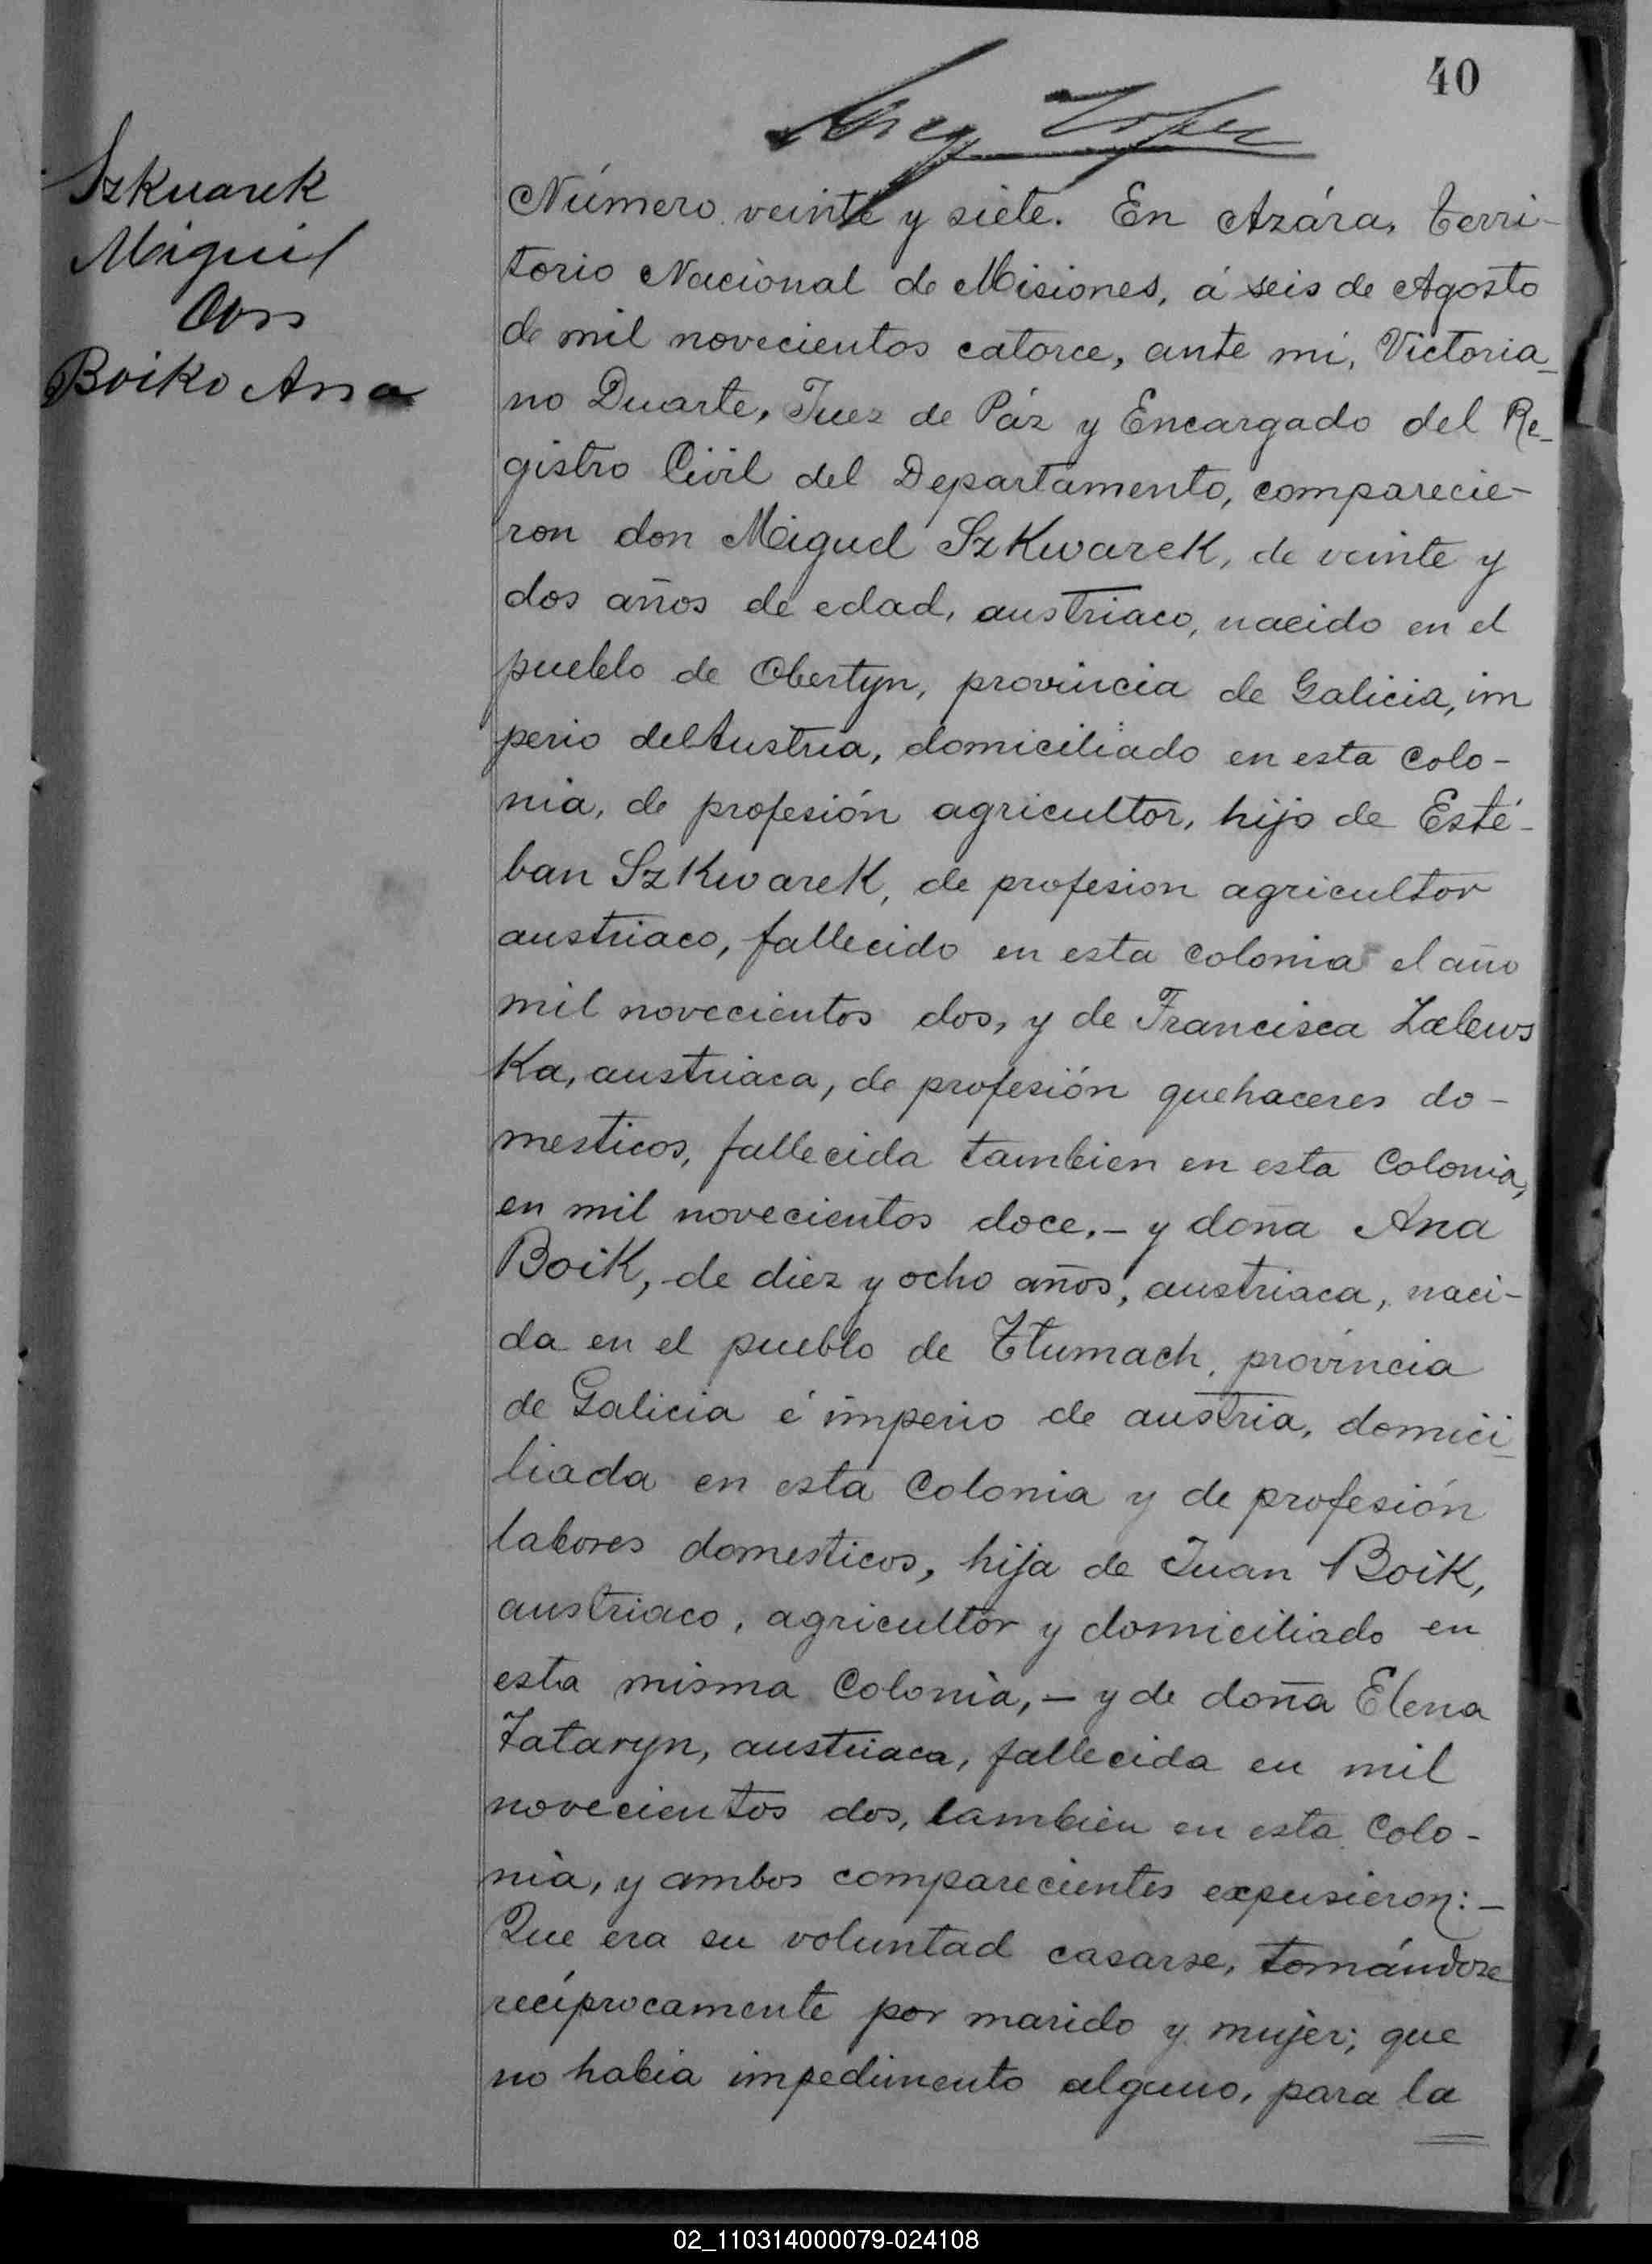 40
Szkuarek
Miguil
Con
Boiko Ana
Número veinte y siete. En Azára, Terri-
torio Nacional de Misiones, á seis de Agosto
de mil novecientos catorce, ante mi, Victoria_
no Duarte, Juez de Páz y Encargado del Re_
gistro Civil del Departamento, comparecie-
ron don Miguel SzKwarek, de veinte y
dos años de edad, austriaco, nacido en el
pueblo de Obertyn, provincia de Galicia, im
perio del Austria, domiciliado en esta Colo-
nia, de profesión agricultor, hijo de Esté-
ban SzKwarek, de profesion agricultor
austriaco, fallecido en esta Colonia el año
mil novecientos dos, y de Francisca Zalews
Ka, austriaca, de profesión quehaceres do-
mesticos, fallecida tambien en esta Colonia,
en mil novecientos doce.- y doña Ana
Boik, de diez y ocho años, austriaca, naci-
da en el pueblo de Ttumach, provincia
de Galicia é imperio de austria, domici_
liada en esta Colonia y de profesión
labores domesticos, hija de Juan Boik,
austriaco, agricultor y domiciliado en
esta misma Colonia,- y de doña Elena
Tataryn, austriaca, fallecida en mil
novecientos dos, tambien en esta Colo-
nia, y ambos comparecientes expusieron:-
Que era su voluntad casarse, tomándose
recíprocamente por marido y mujer; que
no habia impedimento alguno, para la
02_110314000079-024108